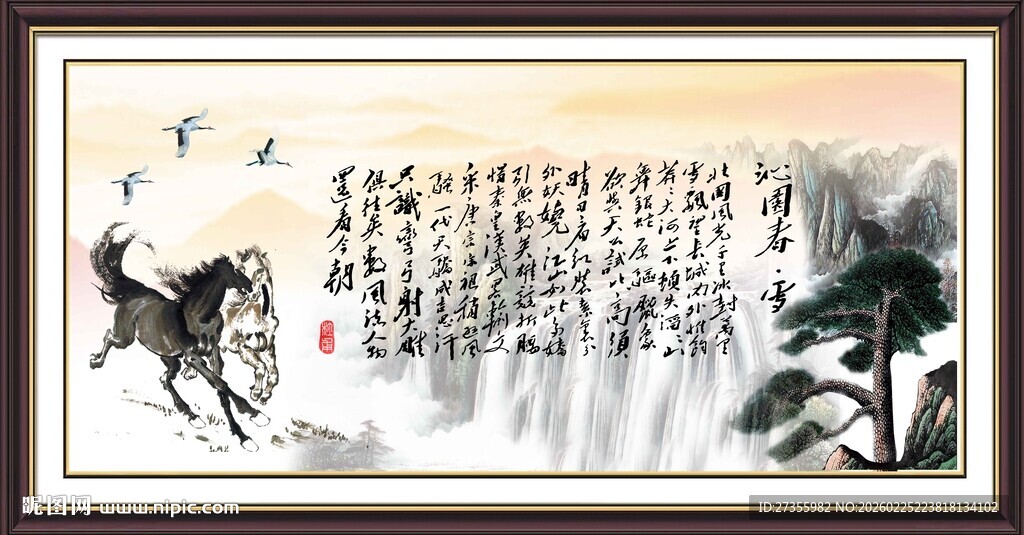 沁園春·雪
北國風光千里冰封萬里
雪飄望長城內外惟餘
莽々大河上下頓失滔々山
舞銀蛇原驅臘象
欲與天公試比高須
晴日看紅裝素裹分
外妖嬈 江山如此多嬌
引無數英雄競折腰
惜秦皇漢武略輸文
采唐宗宋祖稍遜風
騷一代天驕成吉思汗
只識彎弓射大雕
俱往矣數風流人物
還看今朝
昵图网 www.nipic.com
ID:27355982 NO:20260225223818134102